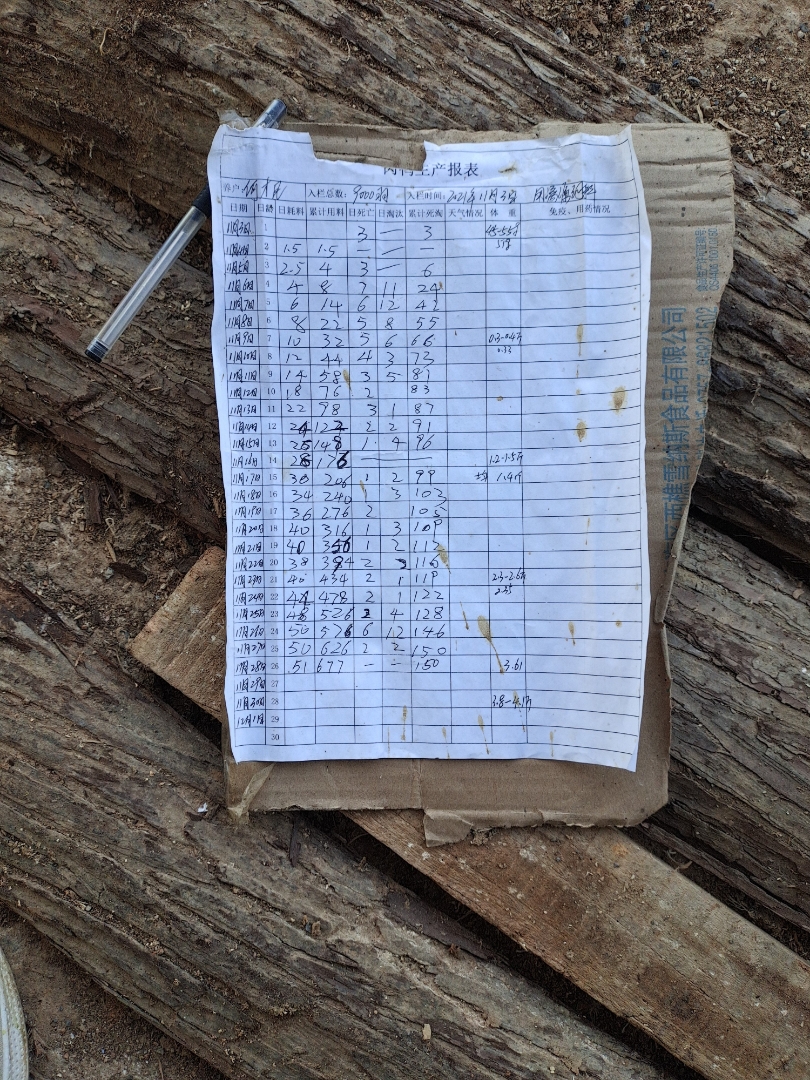 生产报表
客户 入栏总数: 9000羽 入栏时间: 2021年11月3日
日期 日龄 日耗料 累计用料 日死亡 日淘汰 累计死淘 天气情况 体 重 免疫、用药情况
11月3日 1 3 — 3
11月4日 2 1.5 1.5 — —
11月5日 3 2.5 4 3 — 6
11月6日 4 4 8 7 11 24
11月7日 5 6 14 6 12 42
11月8日 6 8 22 5 8 55
11月9日 7 10 32 5 6 66 0.3-0.4斤
0.33
11月10日 8 12 44 4 3 73
11月11日 9 14 58 3 5 81
11月12日 10 18 76 2 83
11月13日 11 22 98 3 1 87
11月14日 12 24 122 2 2 91
11月15日 13 25 148 1 4 96
11月16日 14 28 176 — — 1.2-1.5斤
11月17日 15 30 206 1 2 99 均 1.4斤
11月18日 16 34 240 1 3 103
11月19日 17 36 276 2 105
11月20日 18 40 316 1 3 109
11月21日 19 40 356 1 2 112
11月22日 20 38 394 2 116
11月23日 21 40 434 2 1 119 2.3-2.6斤
11月24日 22 44 478 2 1 122
11月25日 23 48 526 2 4 128
11月26日 24 50 576 6 12 146
11月27日 25 50 626 2 2 150
11月28日 26 51 677 — — 150 3.61
11月29日 27
11月30日 28 3.8-4.1斤
12月1日 29
30
食品有限公司